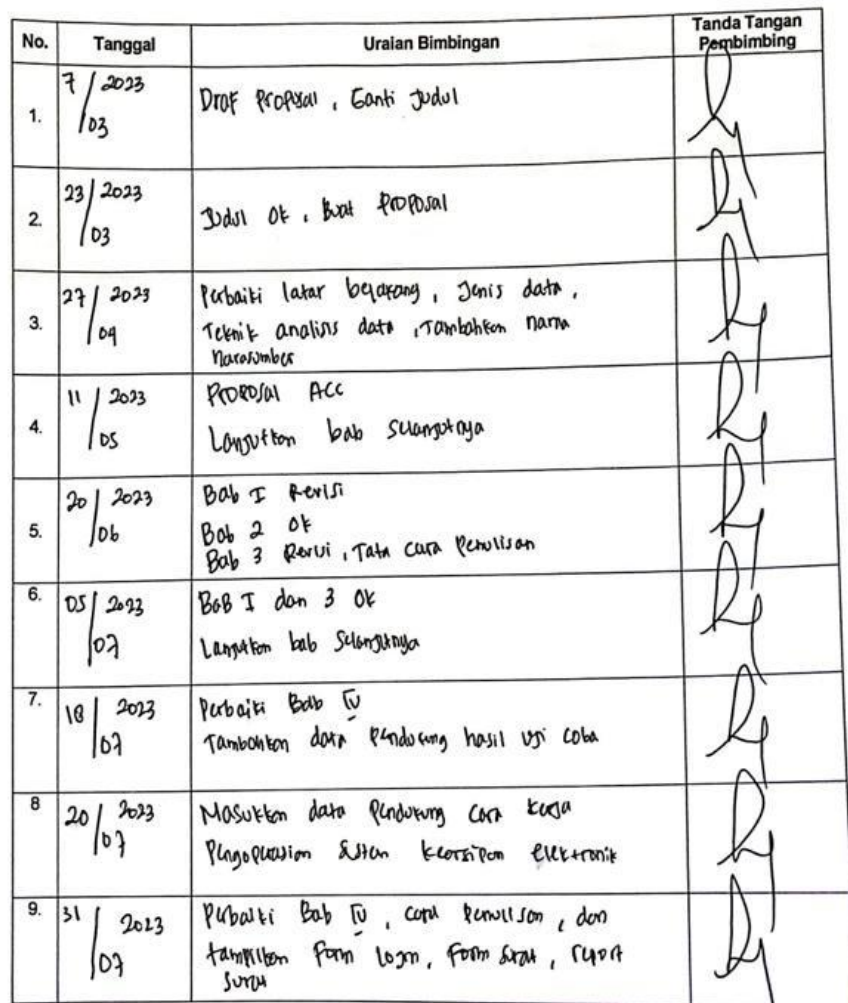 No. Tanggal Uraian Bimbingan Tanda Tangan
Pembimbing
1. 7/03 2023 Draf Proposal, Ganti Judul
2. 23/03 2023 Judul Ok, Buat Proposal
3. 27/04 2023 Perbaiki latar belakang, Jenis data,
Teknik analisis data, Tambahkan nama
Narasumber
4. 11/05 2023 Proposal ACC
Lanjutkan bab selanjutnya
5. 20/06 2023 Bab I Revisi
Bab 2 Ok
Bab 3 Revisi, Tata cara Penulisan
6. 05/07 2023 BaB I dan 3 Ok
Lanjutkan bab Selanjutnya
7. 18/07 2023 Perbaiki Bab IV
Tambahkan data Pendukung hasil uji coba
8 20/07 2023 Masukkan data Pendukung Cara kerja
Pengoperasian Sistem kearsipan elektronik
9. 31/07 2023 Perbaiki Bab IV, cara Penulisan, dan
tampilkan Form login, Form Surat, report
Surat